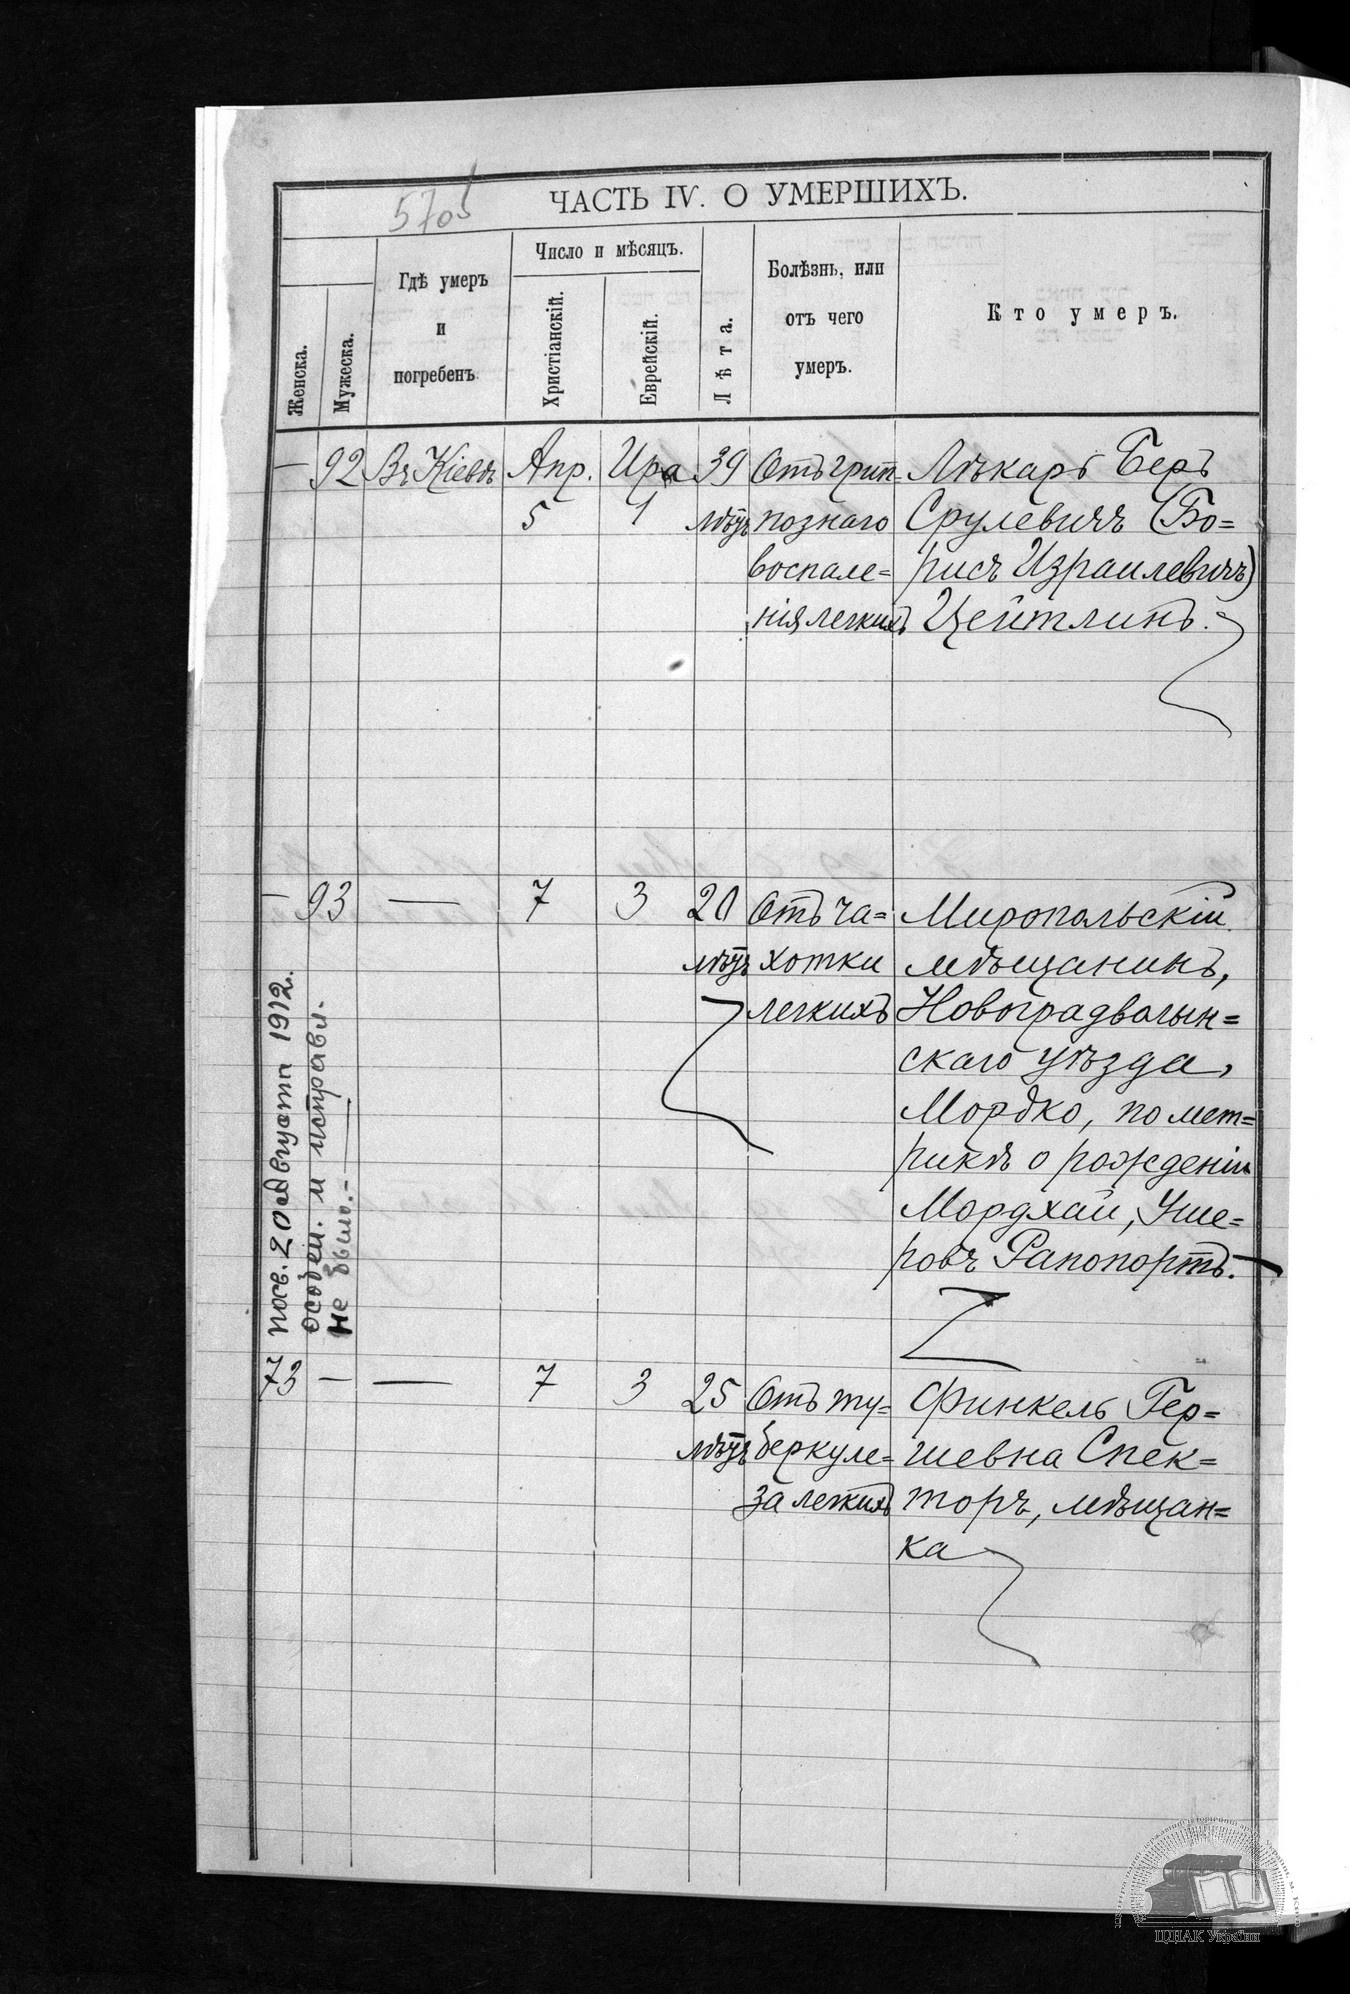 570
ЧАСТЬ IV. О УМЕРШИХЪ.
Женска.
Мужеска.
Гдѣ умеръ
и
погребенъ
Число и мѣсяцъ.
Христіанскій.
Еврейскій.
Лѣта.
Болѣзнь, или
отъ чего
умеръ.
Кто умеръ.
— 92 Въ Кіевѣ Апр. Ира 39 Отъ грип- Лѣкарь Беръ
5 1 лѣтъ познаго Срулевичъ (Бо=
воспале= рисъ Израилевичъ)
нія легкихъ Цейтлинъ.
— 93 — 7 3 20 Отъ ча= Миропольскій
лѣтъ хотки мѣщанинъ,
легкихъ Новоградволын=
скаго уѣзда,
Мордко, по мет=
рикѣ о рожденіи
Мордхай, Уше=
ровъ Рапопортъ.—
посв. 20 августа 1912.
особен. и исправл.
не было.—
73 — — 7 3 25 Отъ ту= Финкель Гер=
лѣтъ беркуле= шевна Спек=
за легкихъ торъ, мѣщан=
ка
ЦДІАК України